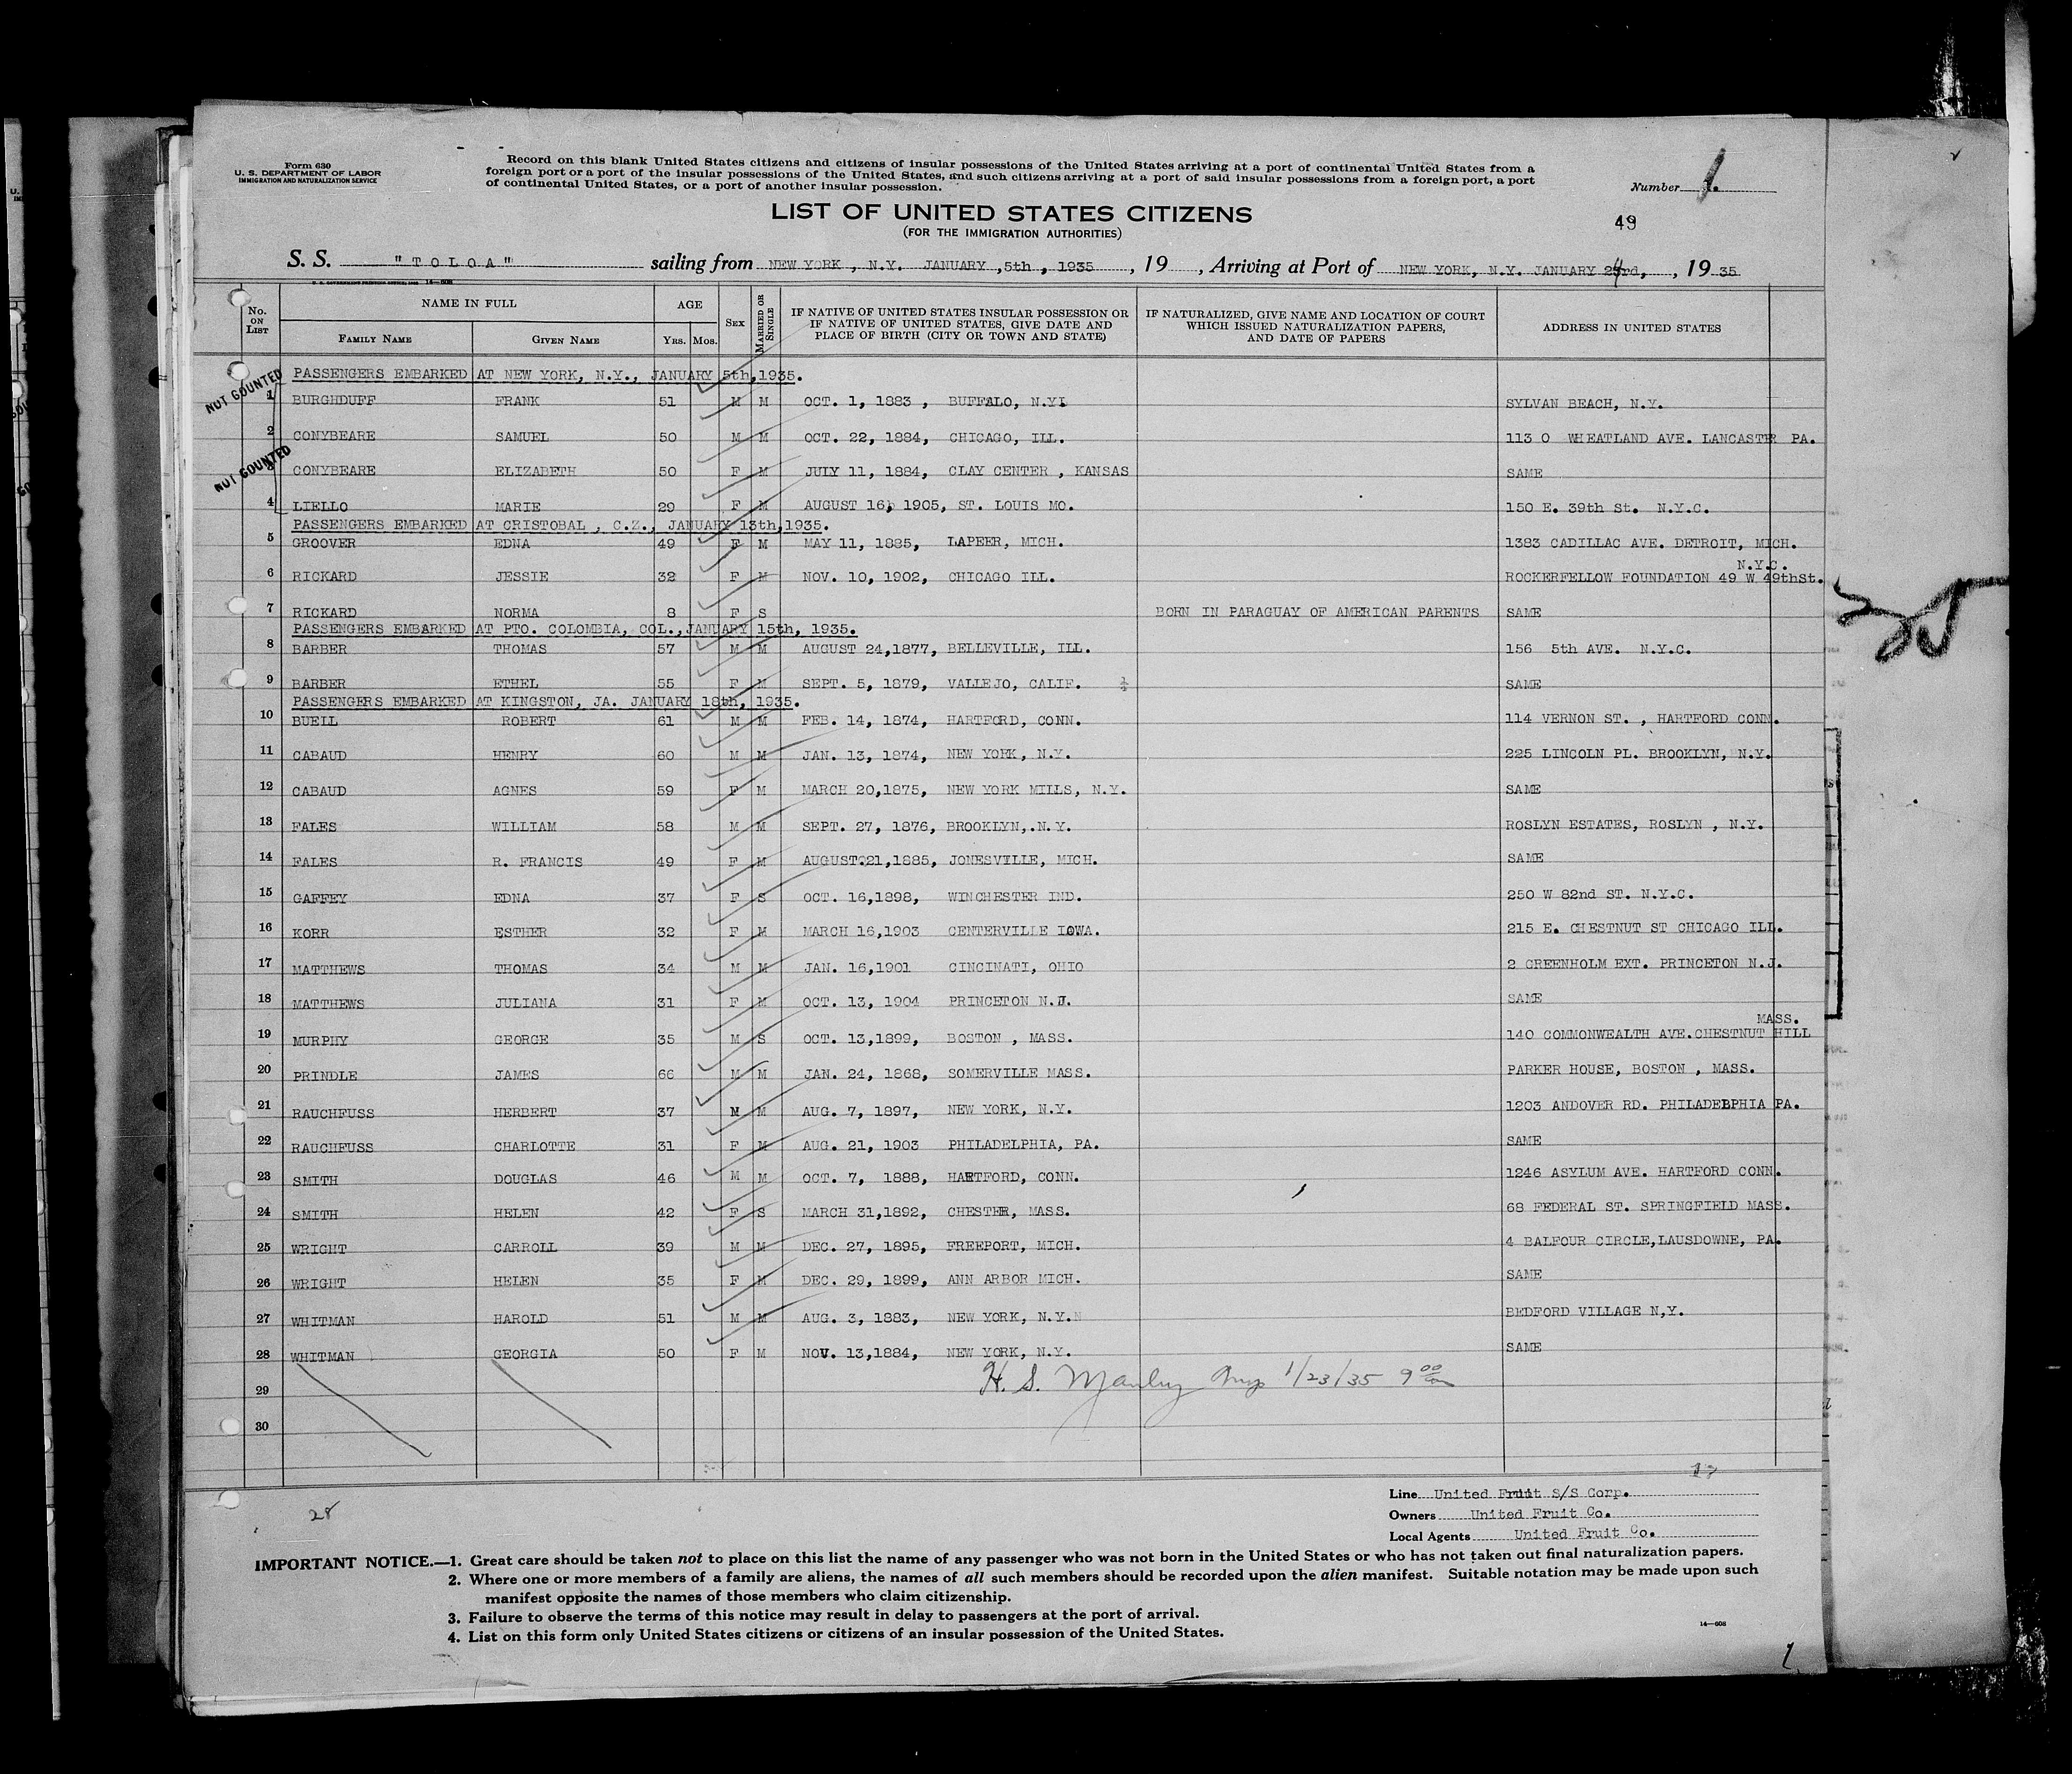 Form 630
U. S. DEPARTMENT OF LABOR
IMMIGRATION AND NATURALIZATION SERVICE
Record on this blank United States citizens and citizens of insular possessions of the United States arriving at a port of continental United States from a
foreign port or a port of the insular possessions of the United States, and such citizens arriving at a port of said insular possessions from a foreign port, a port
of continental United States, or a port of another insular possession.
Number 1.
49
LIST OF UNITED STATES CITIZENS
(FOR THE IMMIGRATION AUTHORITIES)
S. S. "TOLOA" sailing from NEW YORK, N.Y. JANUARY ,5th, 1935 , 19 , Arriving at Port of NEW YORK, N.Y. JANUARY 24rd, , 19 35
No. ON LIST NAME IN FULL AGE SEX MARRIED OR SINGLE IF NATIVE OF UNITED STATES INSULAR POSSESSION OR IF NATIVE OF UNITED STATES, GIVE DATE AND PLACE OF BIRTH (CITY OR TOWN AND STATE) IF NATURALIZED, GIVE NAME AND LOCATION OF COURT WHICH ISSUED NATURALIZATION PAPERS, AND DATE OF PAPERS ADDRESS IN UNITED STATES
FAMILY NAME GIVEN NAME YRS. MOS.
PASSENGERS EMBARKED AT NEW YORK, N.Y., JANUARY 5th,1935.
NOT COUNTED
1 BURGHDUFF FRANK 51 M M OCT. 1, 1883 , BUFFALO, N.Y. SYLVAN BEACH, N.Y.
2 CONYBEARE SAMUEL 50 M M OCT. 22, 1884, CHICAGO, ILL. 113 0 WHEATLAND AVE. LANCASTE PA.
NOT COUNTED
3 CONYBEARE ELIZABETH 50 F M JULY 11, 1884, CLAY CENTER , KANSAS SAME
4 LIELLO MARIE 29 F M AUGUST 16, 1905, ST. LOUIS MO. 150 E. 39th St. N.Y.C.
PASSENGERS EMBARKED AT CRISTOBAL , C.Z., JANUARY 13th,1935.
5 GROOVER EDNA 49 F M MAY 11, 1885, LAPEER, MICH. 1383 CADILLAC AVE. DETROIT, MICH.
6 RICKARD JESSIE 32 F M NOV. 10, 1902, CHICAGO ILL. ROCKERFELLOW FOUNDATION 49 W 49thSt. N.Y.C.
7 RICKARD NORMA 8 F S BORN IN PARAGUAY OF AMERICAN PARENTS SAME
PASSENGERS EMBARKED AT PTO. COLOMBIA, COL.,JANUARY 15th, 1935.
8 BARBER THOMAS 57 M M AUGUST 24,1877, BELLEVILLE, ILL. 156 5th AVE. N.Y.C.
9 BARBER ETHEL 55 F M SEPT. 5, 1879, VALLEJO, CALIF. SAME
PASSENGERS EMBARKED AT KINGSTON, JA. JANUARY 18th, 1935.
10 BUELL ROBERT 61 M M FEB. 14, 1874, HARTFORD, CONN. 114 VERNON ST. , HARTFORD CONN.
11 CABAUD HENRY 60 M M JAN. 13, 1874, NEW YORK, N.Y. 225 LINCOLN PL. BROOKLYN, N.Y.
12 CABAUD AGNES 59 F M MARCH 20,1875, NEW YORK MILLS, N.Y. SAME
13 FALES WILLIAM 58 M M SEPT. 27, 1876, BROOKLYN,.N.Y. ROSLYN ESTATES, ROSLYN , N.Y.
14 FALES R. FRANCIS 49 F M AUGUST 21,1885, JONESVILLE, MICH. SAME
15 GAFFEY EDNA 37 F S OCT. 16,1898, WINCHESTER IND. 250 W 82nd ST. N.Y.C.
16 KORR ESTHER 32 F M MARCH 16,1903 CENTERVILLE IOWA. 215 E. CHESTNUT ST CHICAGO ILL.
17 MATTHEWS THOMAS 34 M M JAN. 16,1901 CINCINATI, OHIO 2 GREENHOLM EXT. PRINCETON N.J.
18 MATTHEWS JULIANA 31 F M OCT. 13, 1904 PRINCETON N.J. SAME
19 MURPHY GEORGE 35 M S OCT. 13,1899, BOSTON , MASS. 140 COMMONWEALTH AVE.CHESTNUT HILL MASS.
20 PRINDLE JAMES 66 M M JAN. 24, 1868, SOMERVILLE MASS. PARKER HOUSE, BOSTON , MASS.
21 RAUCHFUSS HERBERT 37 M M AUG. 7, 1897, NEW YORK, N.Y. 1203 ANDOVER RD. PHILADELPHIA PA.
22 RAUCHFUSS CHARLOTTE 31 F M AUG. 21, 1903 PHILADELPHIA, PA. SAME
23 SMITH DOUGLAS 46 M M OCT. 7, 1888, HARTFORD, CONN. 1246 ASYLUM AVE. HARTFORD CONN.
24 SMITH HELEN 42 F S MARCH 31,1892, CHESTER, MASS. 68 FEDERAL ST. SPRINGFIELD MASS.
25 WRIGHT CARROLL 39 M M DEC. 27, 1895, FREEPORT, MICH. 4 BALFOUR CIRCLE,LAUSDOWNE, PA.
26 WRIGHT HELEN 35 F M DEC. 29, 1899, ANN ARBOR MICH. SAME
27 WHITMAN HAROLD 51 M M AUG. 3, 1883, NEW YORK, N.Y. BEDFORD VILLAGE N,Y.
28 WHITMAN GEORGIA 50 F M NOV. 13,1884, NEW YORK, N.Y. SAME
H. S. Manley Insp 1/23/35 9 00 am
29
30
28
Line United Fruit S/S Corp.
Owners United Fruit Co.
Local Agents United Fruit Co.
IMPORTANT NOTICE.—1. Great care should be taken not to place on this list the name of any passenger who was not born in the United States or who has not taken out final naturalization papers.
2. Where one or more members of a family are aliens, the names of all such members should be recorded upon the alien manifest. Suitable notation may be made upon such
manifest opposite the names of those members who claim citizenship.
3. Failure to observe the terms of this notice may result in delay to passengers at the port of arrival.
4. List on this form only United States citizens or citizens of an insular possession of the United States.
14—608